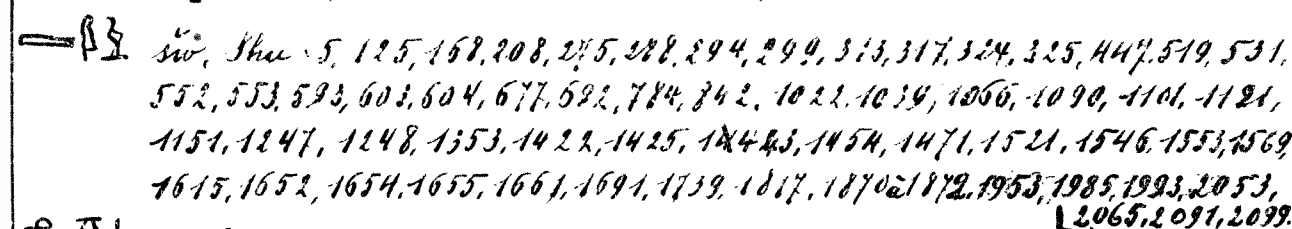 šiō, Shu 5, 125, 168, 208, 275, 288, 294, 299, 313, 317, 324, 325, 447, 519, 531,
552, 553, 593, 603, 604, 677, 692, 784, 842, 1022, 1039, 1066, 1090, 1101, 1121,
1151, 1247, 1248, 1353, 1422, 1425, 1443, 1454, 1471, 1521, 1546, 1553, 1569,
1615, 1652, 1654, 1655, 1661, 1691, 1739, 1817, 1870 à 1872, 1953, 1985, 1993, 2053,
2065, 2091, 2099.